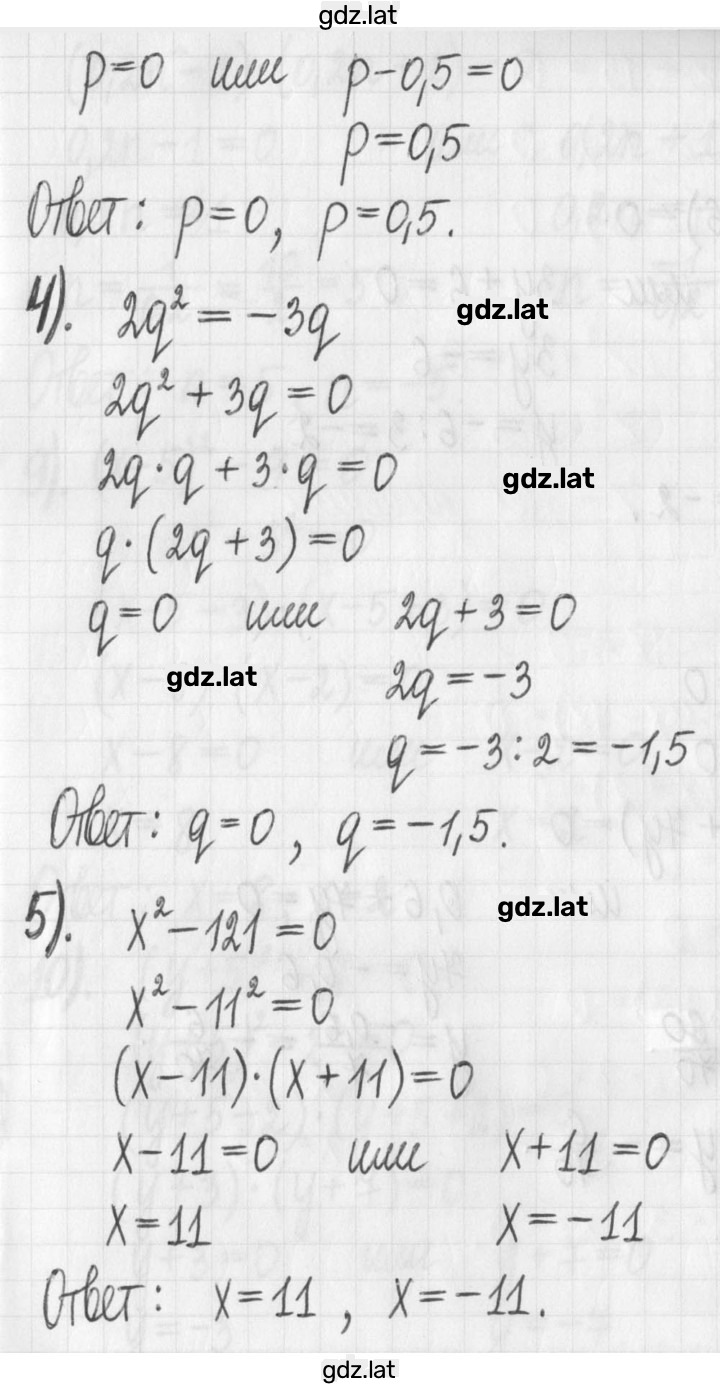 gdz.lat
p=0 или p-0,5=0
p=0,5
Ответ: p=0, p=0,5.
4). 2q²=-3q
gdz.lat
2q²+3q=0
2q·q+3·q=0
gdz.lat
q·(2q+3)=0
q=0 или 2q+3=0
gdz.lat
2q=-3
q=-3:2=-1,5
Ответ: q=0, q=-1,5.
5). x²-121=0
gdz.lat
x²-11²=0
(x-11)·(x+11)=0
x-11=0 или x+11=0
x=11 x=-11
Ответ: x=11, x=-11.
gdz.lat